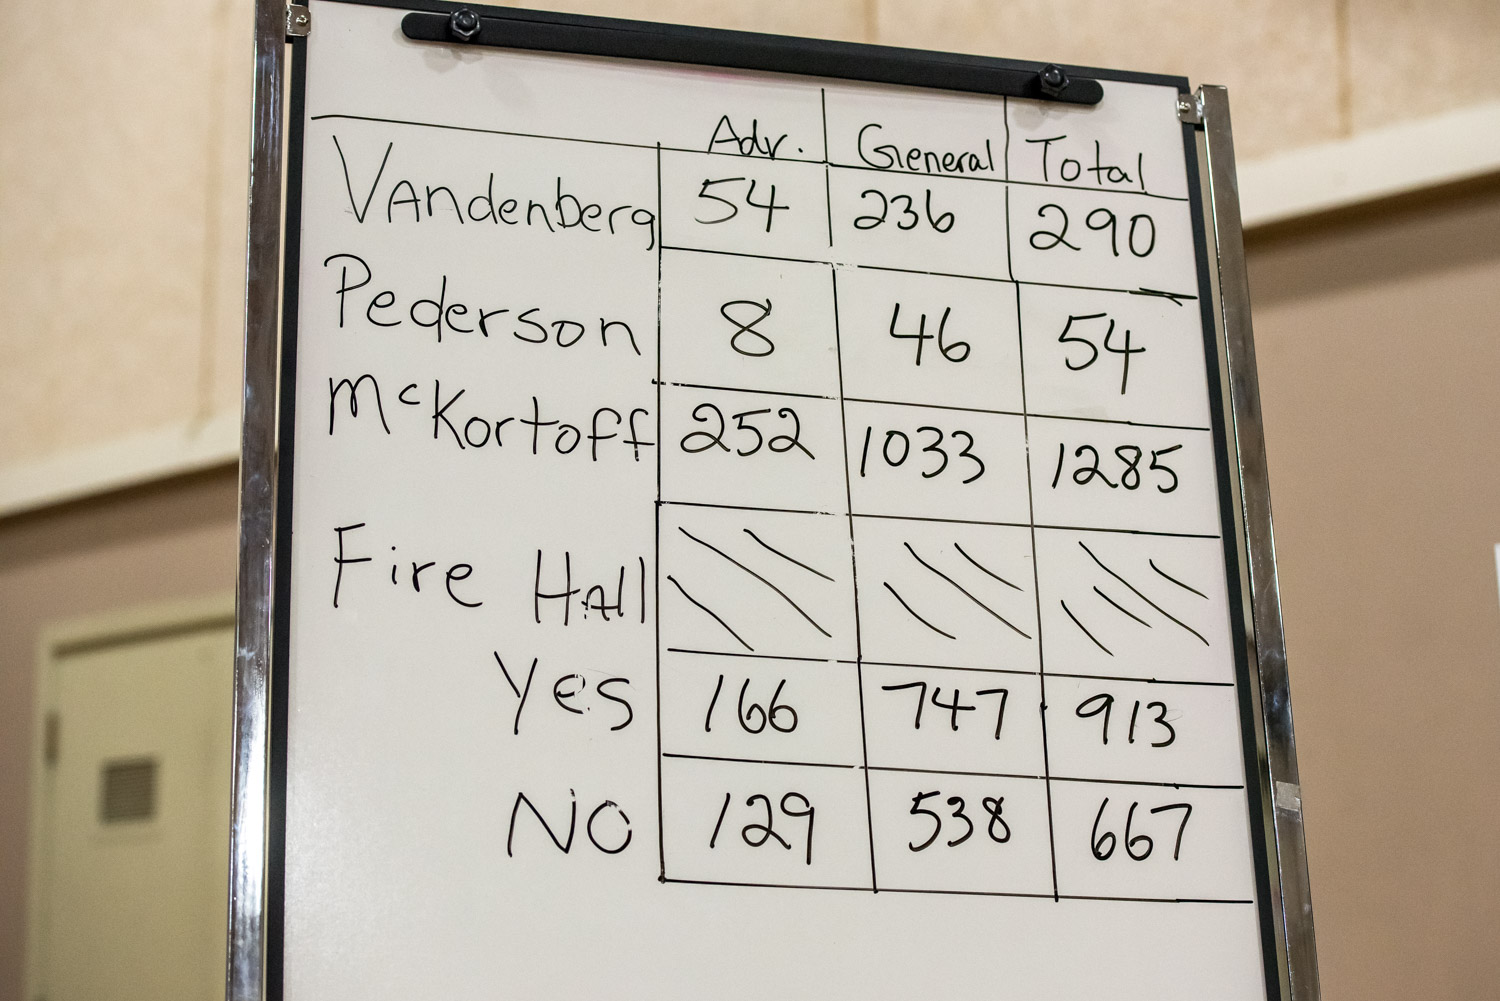 Adv. General Total
VAndenberg 54 236 290
Pederson 8 46 54
McKortoff 252 1033 1285
Fire HAll
Yes 166 747 913
NO 129 538 667